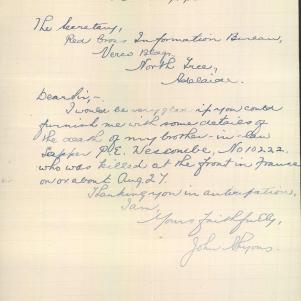 The Secretary,
Red Cross Information Bureau,
Vereo Bldg,
North Tree,
Adelaide.
Dear Sir,-
I would be very glad if you could
furnish me with some details of
the death of my brother-in-law
Sapper P.E. Wescombe, No 10222.
who was killed at the front in France
on or about Aug 27.
Thanking you in anticipation,
I am
Yours faithfully,
John